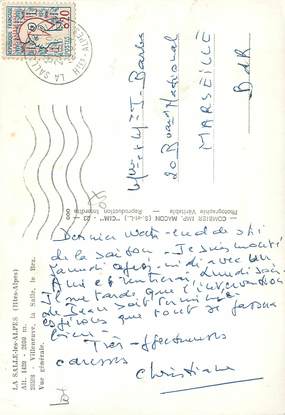 REPUBLIQUE FRANÇAISE
0,20
LA SALLE
LA SALLE-les-ALPES (Htes-Alpes)
Alt. 1420 - 2680 m.
Villeneuve, la Salle, le Bez.
Vue générale.
COMBIER IMP. MACON (S.-et-L.) "CIM"
Photographie Véritable - Reproduction Interdite
20 National
MARSEILLE
BdR
Dernier week-end de ski
de la saison. Je suis monté
samedi après midi avec un
ami et rentrerai lundi soir
que l'intervention
de Jean soit terminée
espérons que tout se passera
bien.
Très affectueuses
caresses
Christiane